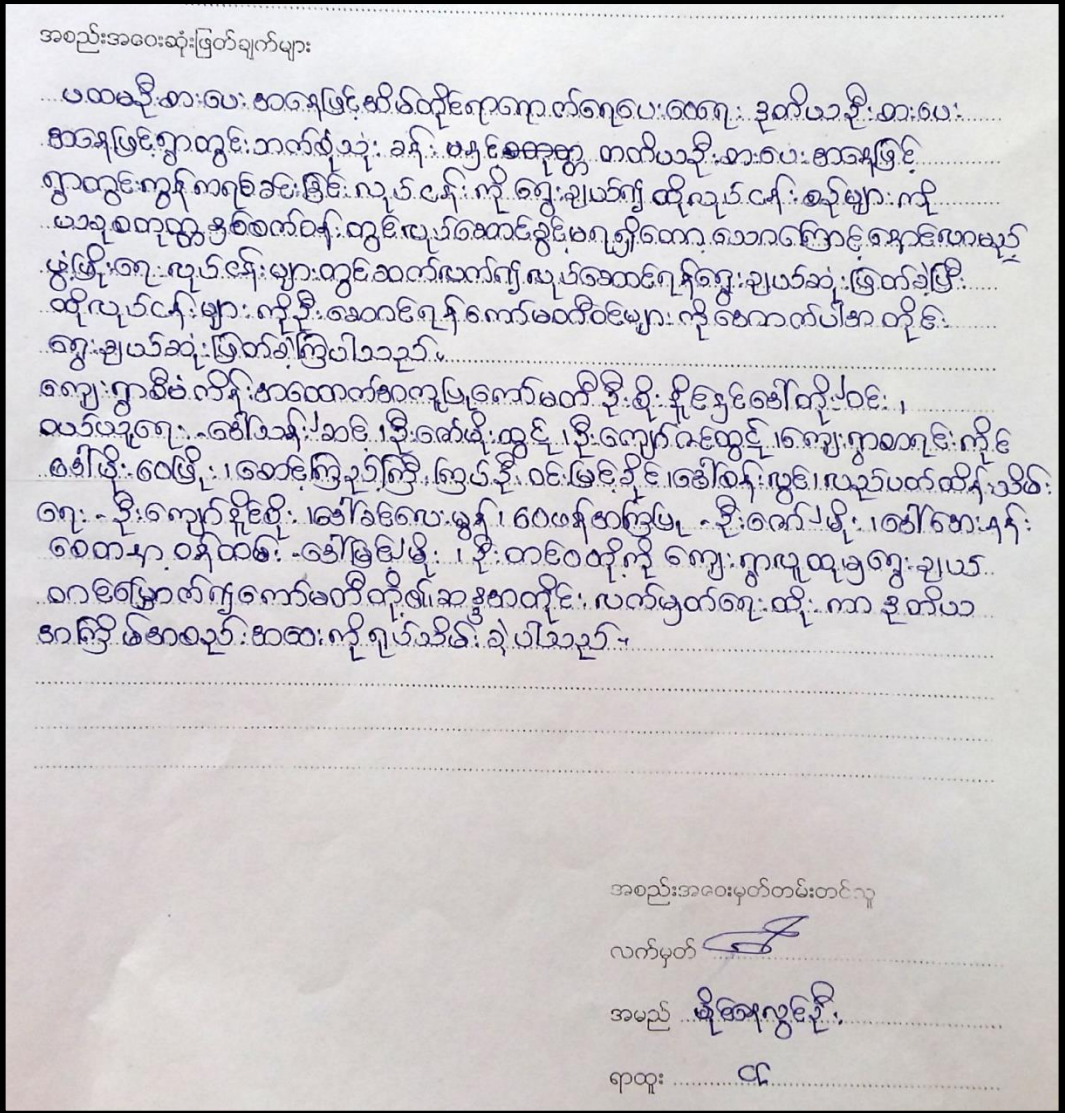 အစည်းအဝေးဆုံးဖြတ်ချက်များ
ပထမဦးစားပေး အနေဖြင့် အိမ်တိုင်ရာရောက်ရေပေးဝေရေး ဒုတိယဦးစားပေး
အနေဖြင့် ရွာတွင်းဘက်စုံသုံး ခန်းမနှင့် တတိယဦးစားပေး အနေဖြင့်
ရွာတွင်းကွန်ကရစ်ခင်းခြင်း လုပ်ငန်းကို ရွေးချယ်၍ ထိုလုပ်ငန်းစဉ်များကို
ယခုစတုတ္ထနှစ်စက်ဝန်းတွင် လုပ်ဆောင်ခွင့်မရ၍တော့သောကြောင့် နှောင်လာမည့်
ဖွံ့ဖြိုးရေးလုပ်ငန်းများတွင် ဆက်လက်၍ လုပ်ဆောင်ရန် ရွေးချယ်ဆုံးဖြတ်ခဲ့ပြီး
ထိုလုပ်ငန်းများကို ဦးဆောင်ရန် ကော်မတီဝင်များကို အောက်ပါအတိုင်း
ရွေးချယ်ဆုံးဖြတ်ခဲ့ကြပါသည်။
ကျေးရွာစီမံကိန်းအထောက်အကူပြုကော်မတီ ဦးစိုးနိုင်နှင့်ဒေါ်တိုးဝင်း၊
ဝယ်ယူရေး - ဒေါ်သန်း ဆင့်၊ ဦးဇော်မိုးထွဋ်၊ ဦးကျော်ဇင်ထွဋ်၊ ကျေးရွာစာရင်းကိုင်
ဒေါ်ဖြိုးဝေဖြိုး၊ စောင့်ကြည့်ကြီးကြပ် ဦးဝင်းမြင့်ခိုင်၊ ဒေါ်စန်းလွင်၊ လည်ပတ်ထိန်းသိမ်း
ရေး - ဦးကျော်နိုင်စိုး၊ ဒေါ်ခင်လေးမွန်၊ ဝေဖန်အကြံပြု - ဦးဇော်မိုး၊ ဒေါ်အေးနန်း
စေတနာ့ဝန်ထမ်း - ဒေါ်မြင့်မိုး၊ ဦးတင်ဝတို့ကို ကျေးရွာလူထုမှ ရွေးချယ်
တင်မြှောက်၍ ကော်မတီတို့၏ ဆန္ဒအတိုင်း လက်မှတ်ရေးထိုးကာ ဒုတိယ
အကြိမ်အစည်းအဝေးကို ရုပ်သိမ်းခဲ့ပါသည်။
အစည်းအဝေးမှတ်တမ်းတင်သူ
လက်မှတ်
အမည်
ရာထူး